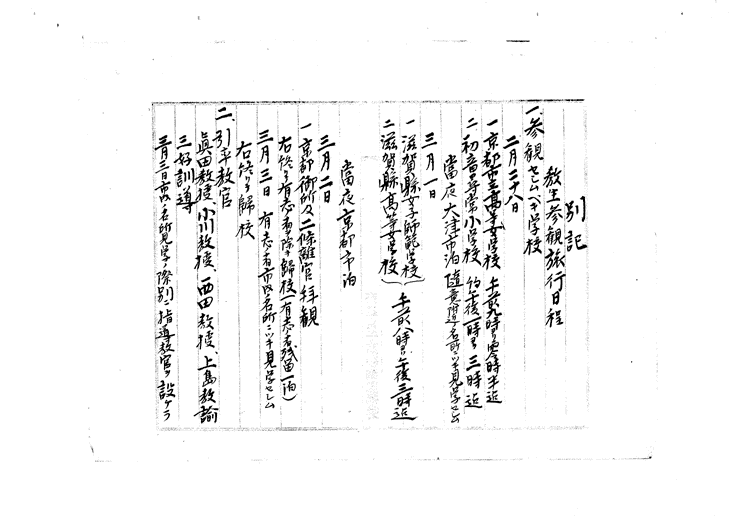 別記
教生参観旅行日程
一、参観セシムベキ学校
二月二十八日
一 京都市立高等女学校 午前九時ヨリ零時半迄
二 初音尋常小学校 午後一時ヨリ三時迄
當夜大津市泊 随意附近ノ名所ニツキ見学セシム
三月一日
一 滋賀縣女子師範学校
二 滋賀縣高等女学校
午前八時ヨリ午後三時迄
當夜京都市泊
三月二日
一 京都御所及二條離宮拝観
右終リ有志者ヲ除キ歸校(有志者残留一泊)
三月三日 有志者市内名所ニツキ見学セシム
右終リ歸校
二、引率教官
眞田教授、小川教授、西田教授、上島教諭
三好訓導
三月三日市内名所見学ノ際別ニ指導教官ヲ設ケラ